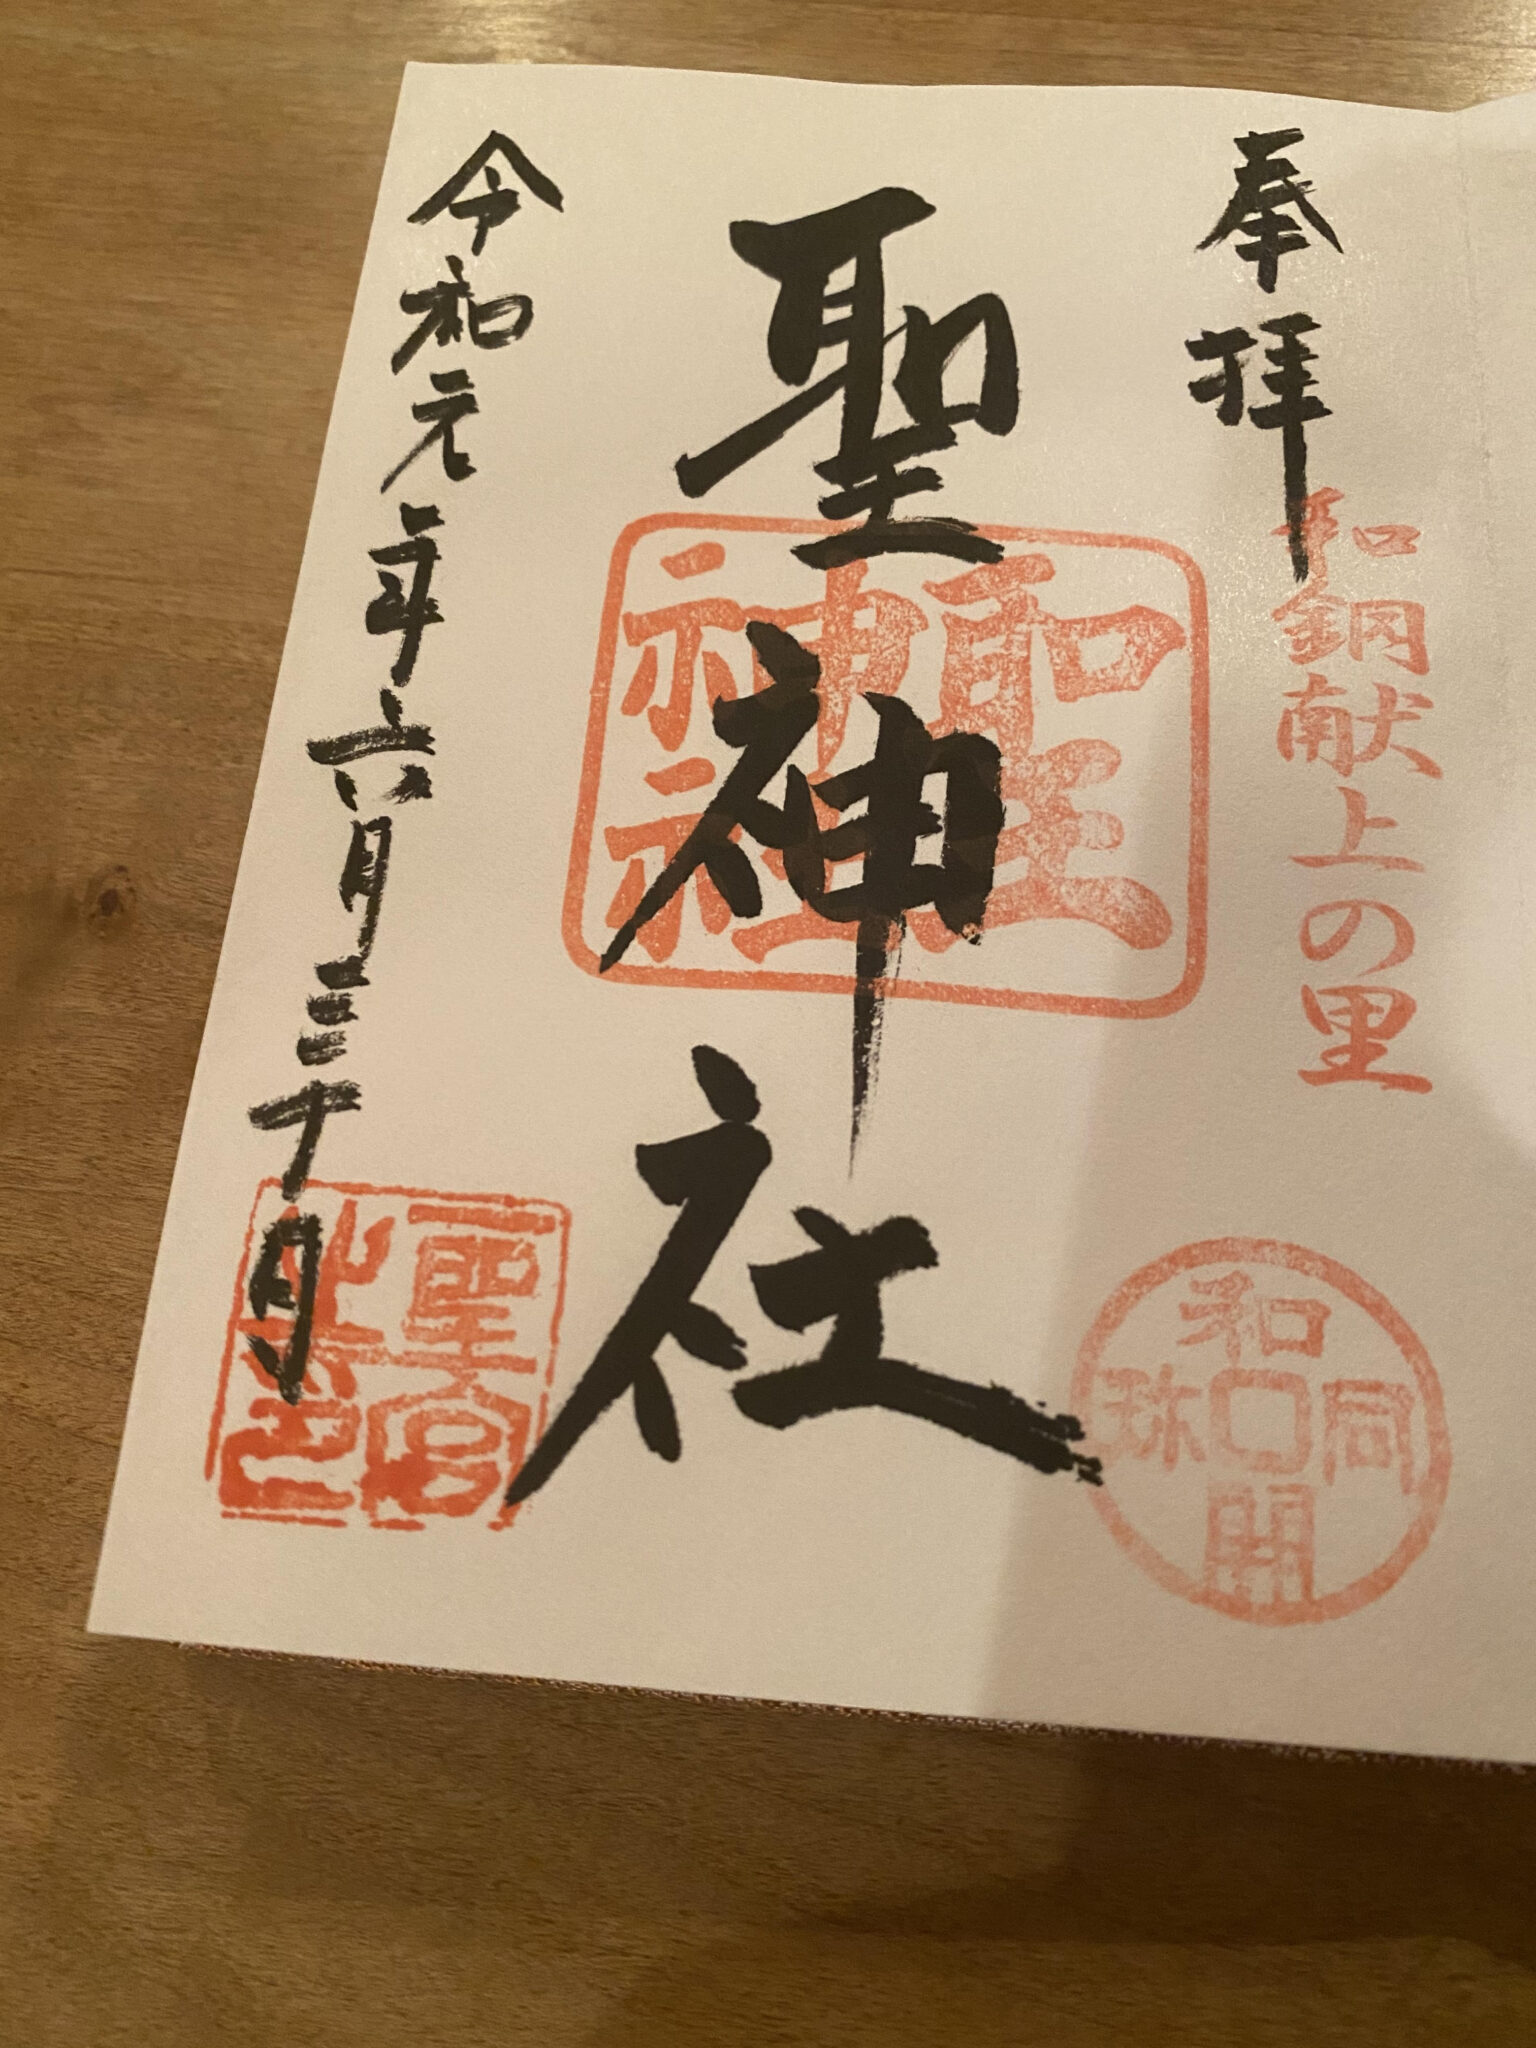 奉拝
和銅献上の里
和同開珎
聖神社
聖
神社
令和元年六月三十日
聖宮